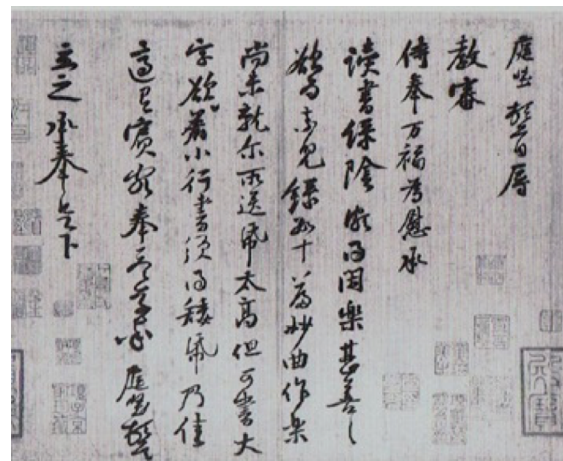 庭堅頓首辱
教審
侍奉万福為慰承
讀書綠陰頗得閑樂甚善〻
欲為索兒錄數十篇妙曲作樂
尚未就尓所送紙太高但可書大
字欲著小行書須得矮紙乃佳
適有賓客奉答草率庭堅頓首
立之承奉足下